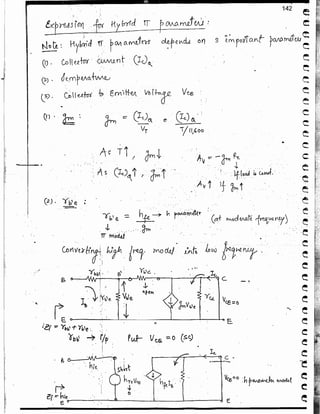 142
Expression for Hybrid π parameters :
Note : Hybrid π parameters depends on 3 important parameters
(1). Collector current (Ic)Q
(2). temperature
(3). Collector to Emitter Voltage VCE
(1) gm : gm = (Ic)Q / VT = (Ic)Q / T/11,600
As T↑, gm↓
As (Ic)Q↑, gm↑
Av = -gm RL
if load is const.
Av↑ if gm↑
(2). rb'e :
rb'e = hfe / gm → h parameter (at moderate frequency)
π model
Converting high freq. model into low frequency.
B rbb' B' rb'c Ic C
Ib rb'e Vb'e open gmVb'e rce VCE=0
E E
Zi = rbb' + rb'e
rbb' → i/p Put VCE = 0 (SC)
B hie Ic C
short
hreVce hfeIb VCE=0 h parameter model
Zi = hie
E E